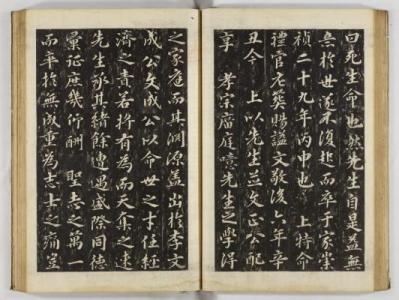 曰死生命也然先生自是益無
意於世遂不復起而卒于家崇
禎二十九年丙申也 上特命
禮官尤異賜謚文敬後六年辛
丑今 上以先生並文正公配
享 孝宗廟庭噫先生之學得
之家庭而其淵源盖出於李文
成公文成公以命世之才任經
濟之責若將有為而天奪之速
先生承其緒餘遭遇盛際同德
彙征庶幾仰酬 聖志之萬一
而卒於無成重為志士之痛豈